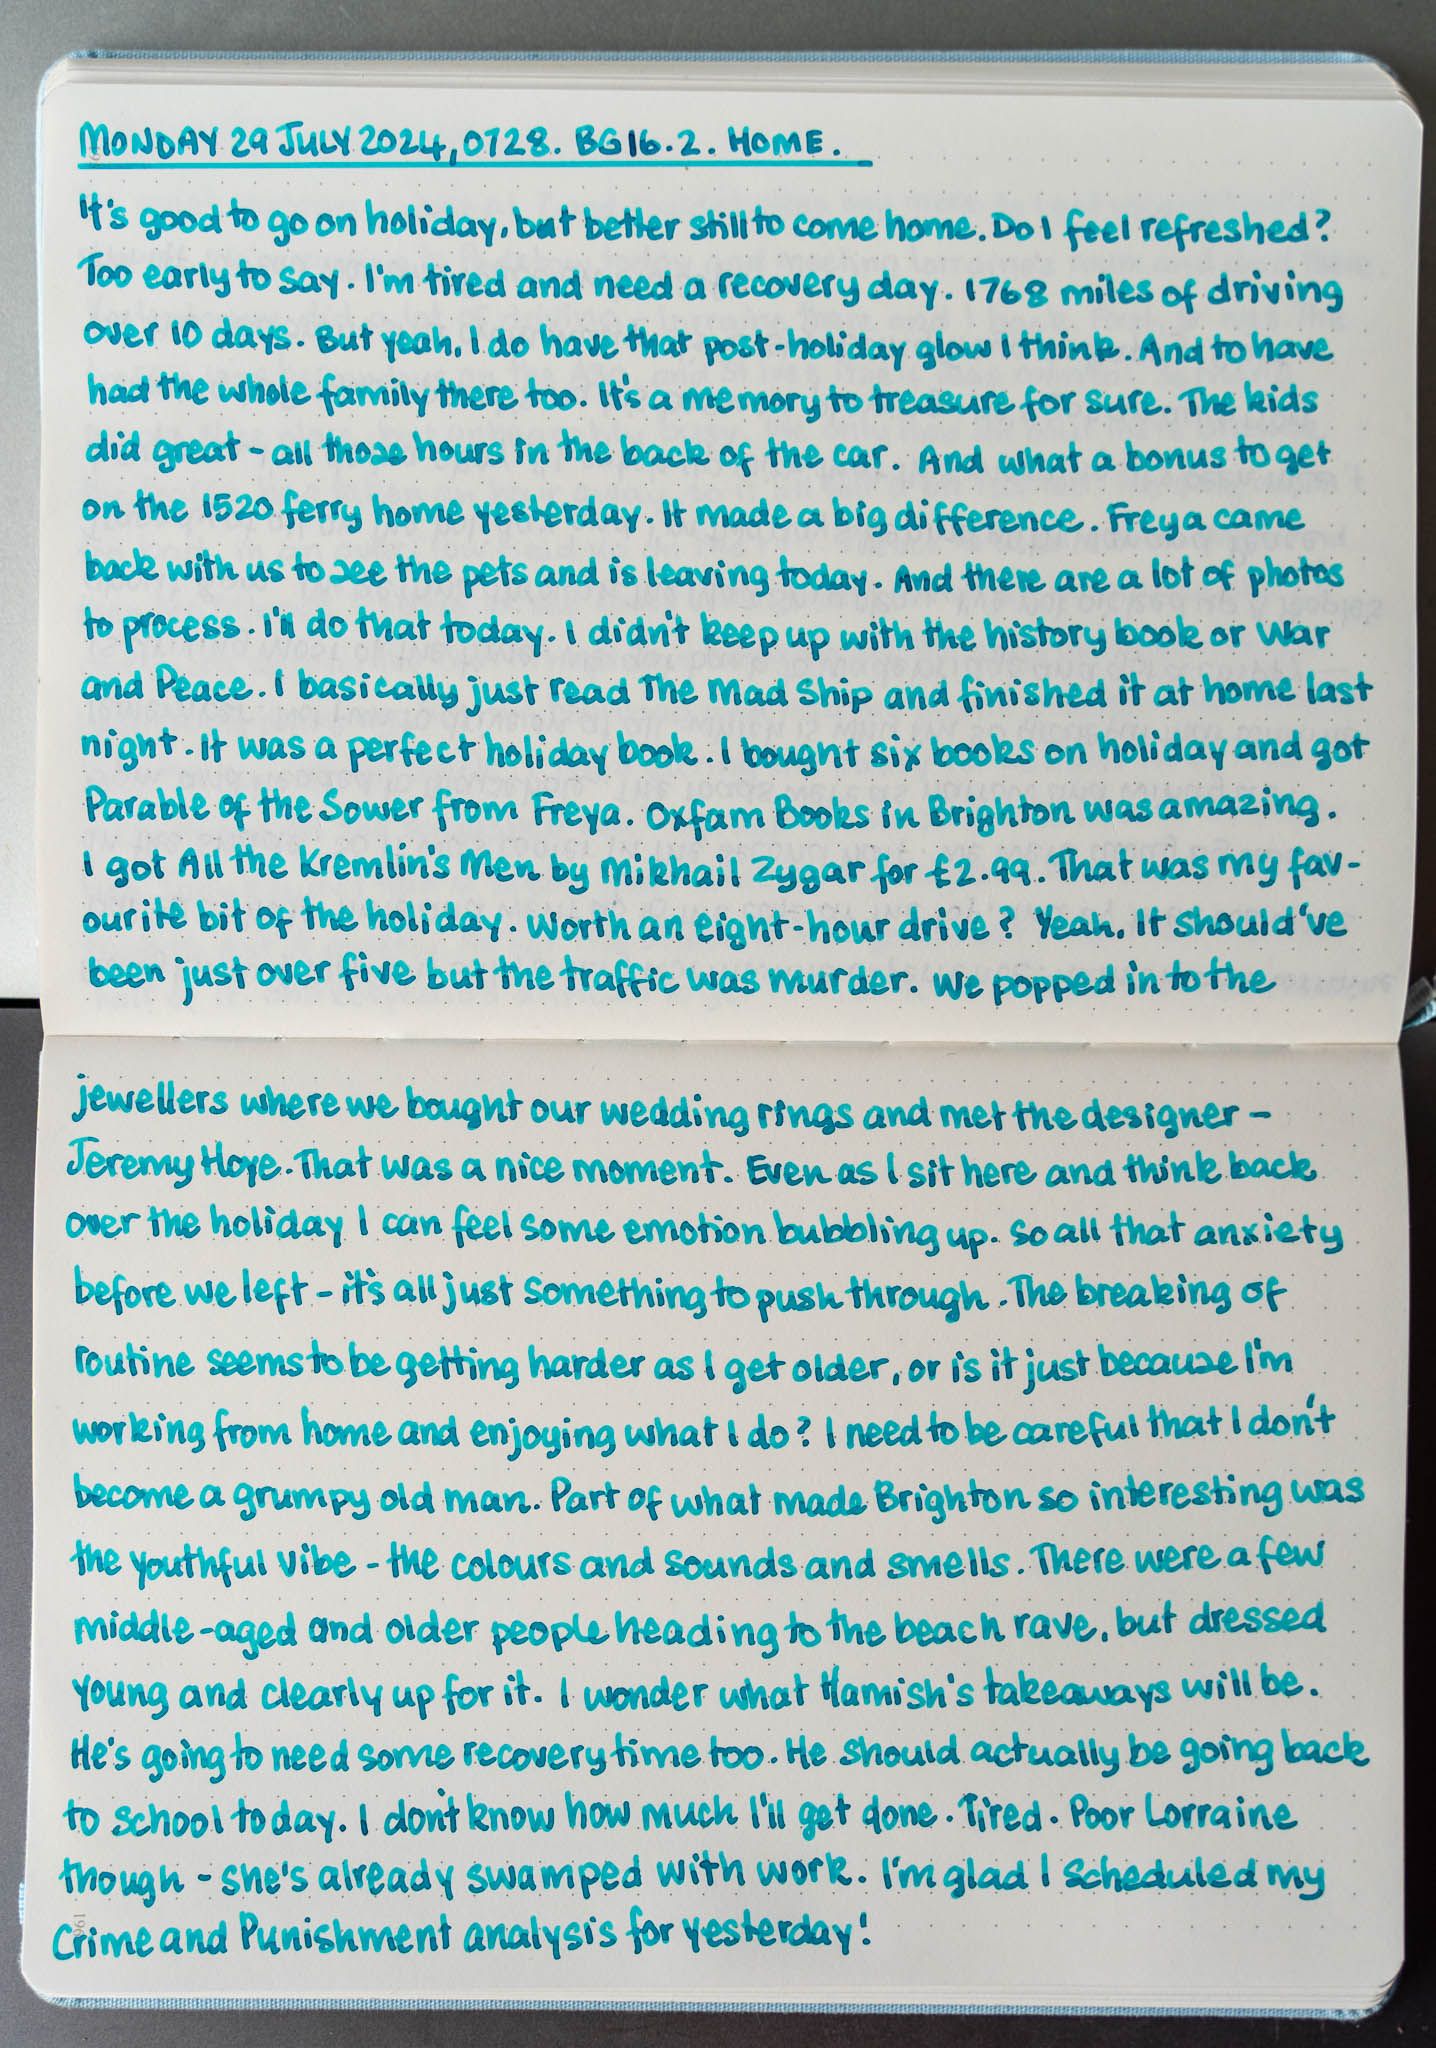 MONDAY 29 JULY 2024, 0728. BG16.2. HOME.
It's good to go on holiday, but better still to come home. Do I feel refreshed?
Too early to say. I'm tired and need a recovery day. 1768 miles of driving
over 10 days. But yeah, I do have that post-holiday glow I think. And to have
had the whole family there too. It's a memory to treasure for sure. The kids
did great - all those hours in the back of the car. And what a bonus to get
on the 1520 ferry home yesterday. It made a big difference. Freya came
back with us to see the pets and is leaving today. And there are a lot of photos
to process. I'll do that today. I didn't keep up with the history book or War
and Peace. I basically just read The Mad Ship and finished it at home last
night. It was a perfect holiday book. I bought six books on holiday and got
Parable of the Sower from Freya. Oxfam Books in Brighton was amazing.
I got All the Kremlin's Men by Mikhail Zygar for £2.99. That was my fav-
ourite bit of the holiday. Worth an eight-hour drive? Yeah. It should've
been just over five but the traffic was murder. We popped in to the
jewellers where we bought our wedding rings and met the designer -
Jeremy Hoye. That was a nice moment. Even as I sit here and think back
over the holiday I can feel some emotion bubbling up. So all that anxiety
before we left - it's all just something to push through. The breaking of
routine seems to be getting harder as I get older, or is it just because I'm
working from home and enjoying what I do? I need to be careful that I don't
become a grumpy old man. Part of what made Brighton so interesting was
the youthful vibe - the colours and sounds and smells. There were a few
middle-aged and older people heading to the beach rave, but dressed
young and clearly up for it. I wonder what Hamish's takeaways will be.
He's going to need some recovery time too. He should actually be going back
to school today. I don't know how much I'll get done. Tired. Poor Lorraine
though - she's already swamped with work. I'm glad I scheduled my
Crime and Punishment analysis for yesterday!
961